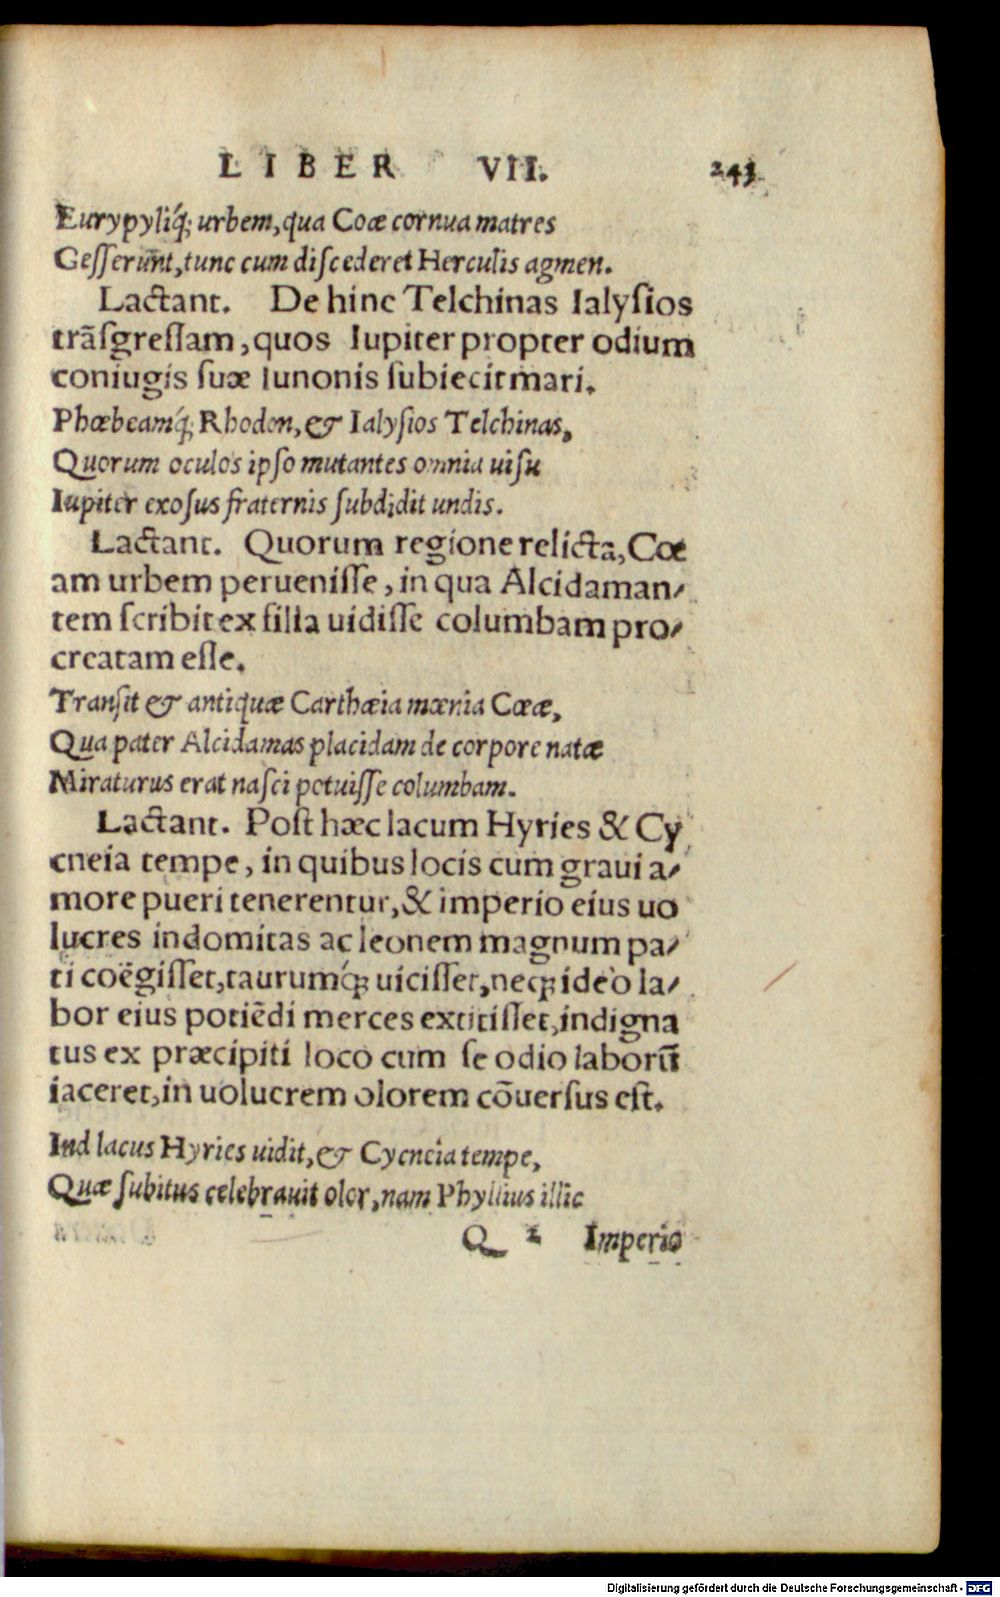 LIBER VII. 243
Eurypyliq́; urbem, qua Coæ cornua matres
Gesserũnt, tunc cum discederet Herculis agmen.
Lactant. De hinc Telchinas Ialysios
trãsgressam, quos Iupiter propter odium
coniugis suæ Iunonis subiecit mari.
Phœbeamq́; Rhodon, & Ialysios Telchinas,
Quorum oculos ipso mutantes omnia uisu
Iupiter exosus fraternis subdidit undis.
Lactant. Quorum regione relicta, Cœ
am urbem peruenisse, in qua Alcidaman-
tem scribit ex filia uidisse columbam pro-
creatam esse.
Transit & antiquæ Carthæia mœnia Cœæ,
Qua pater Alcidamas placidam de corpore natæ
Miraturus erat nasci potuisse columbam.
Lactant. Post hæc lacum Hyries & Cy
cneia tempe, in quibus locis cum graui a-
more pueri tenerentur, & imperio eius uo
lucres indomitas ac leonem magnum pa-
ti coëgisset, taurumq́; uicisset, neq; ideo la-
bor eius potiẽdi merces extitisset, indigna
tus ex præcipiti loco cum se odio laborũ
iaceret, in uolucrem olorem cõuersus est.
Ind lacus Hyries uidit, & Cycneia tempe,
Quæ subitus celebrauit olor, nam Phyllius illic
Q 2 Imperio
Digitalisierung gefördert durch die Deutsche Forschungsgemeinschaft - DFG